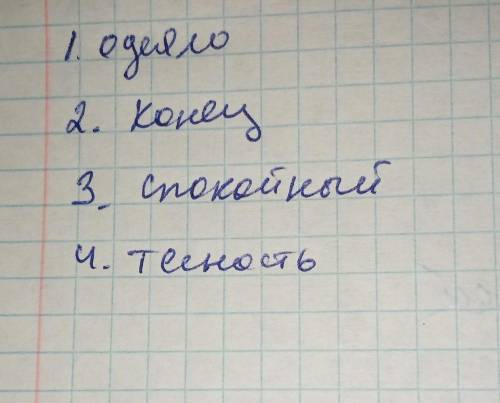 1. одеяло
2. конец
3. спокойный
4. тесность